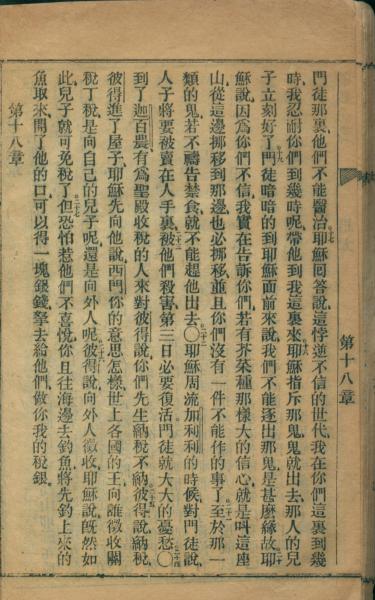 門徒那裏、他們不能醫治、耶穌回答說、這悖逆不信的世代、我在你們這裏到幾
時、我忍耐你們到幾時呢、帶他到我這裏來、耶穌指斥那鬼、鬼就出去、那人的兒
子立刻好了、門徒暗暗的到耶穌面前來說、我們不能逐出那鬼、是甚麼緣故、耶
穌說、因爲你們不信、我實在告訴你們、若有芥菜種那樣大的信心、就是呌這座
山從這邊挪移到那邊、也必挪移、並且你們沒有一件不能作的事了、至於那一
類的鬼、若不禱告禁食、就不能趕他出去、〇耶穌周流加利利的時候、對門徒說、
人子將要被賣在人手裏、被他們殺害、第三日必要復活、門徒就大大的憂愁、〇
到了迦百農、有爲聖殿收稅的人、來對彼得說、你們先生納稅不納、彼得說、納稅、
彼得進了屋子、耶穌先向他說、西門你的意思怎樣、世上各國的王、向誰徵收關
稅丁稅、是向自己的兒子呢、還是向外人呢、彼得說、向外人徵收、耶穌說、旣然如
此、兒子就可免稅了、但恐怕惹他們不喜悅、你且往海邊去釣魚、將先釣上來的
魚取來、開了他的口、可以得一塊銀錢、拏去給他們、做你我的稅銀、
第十八章
第十八章